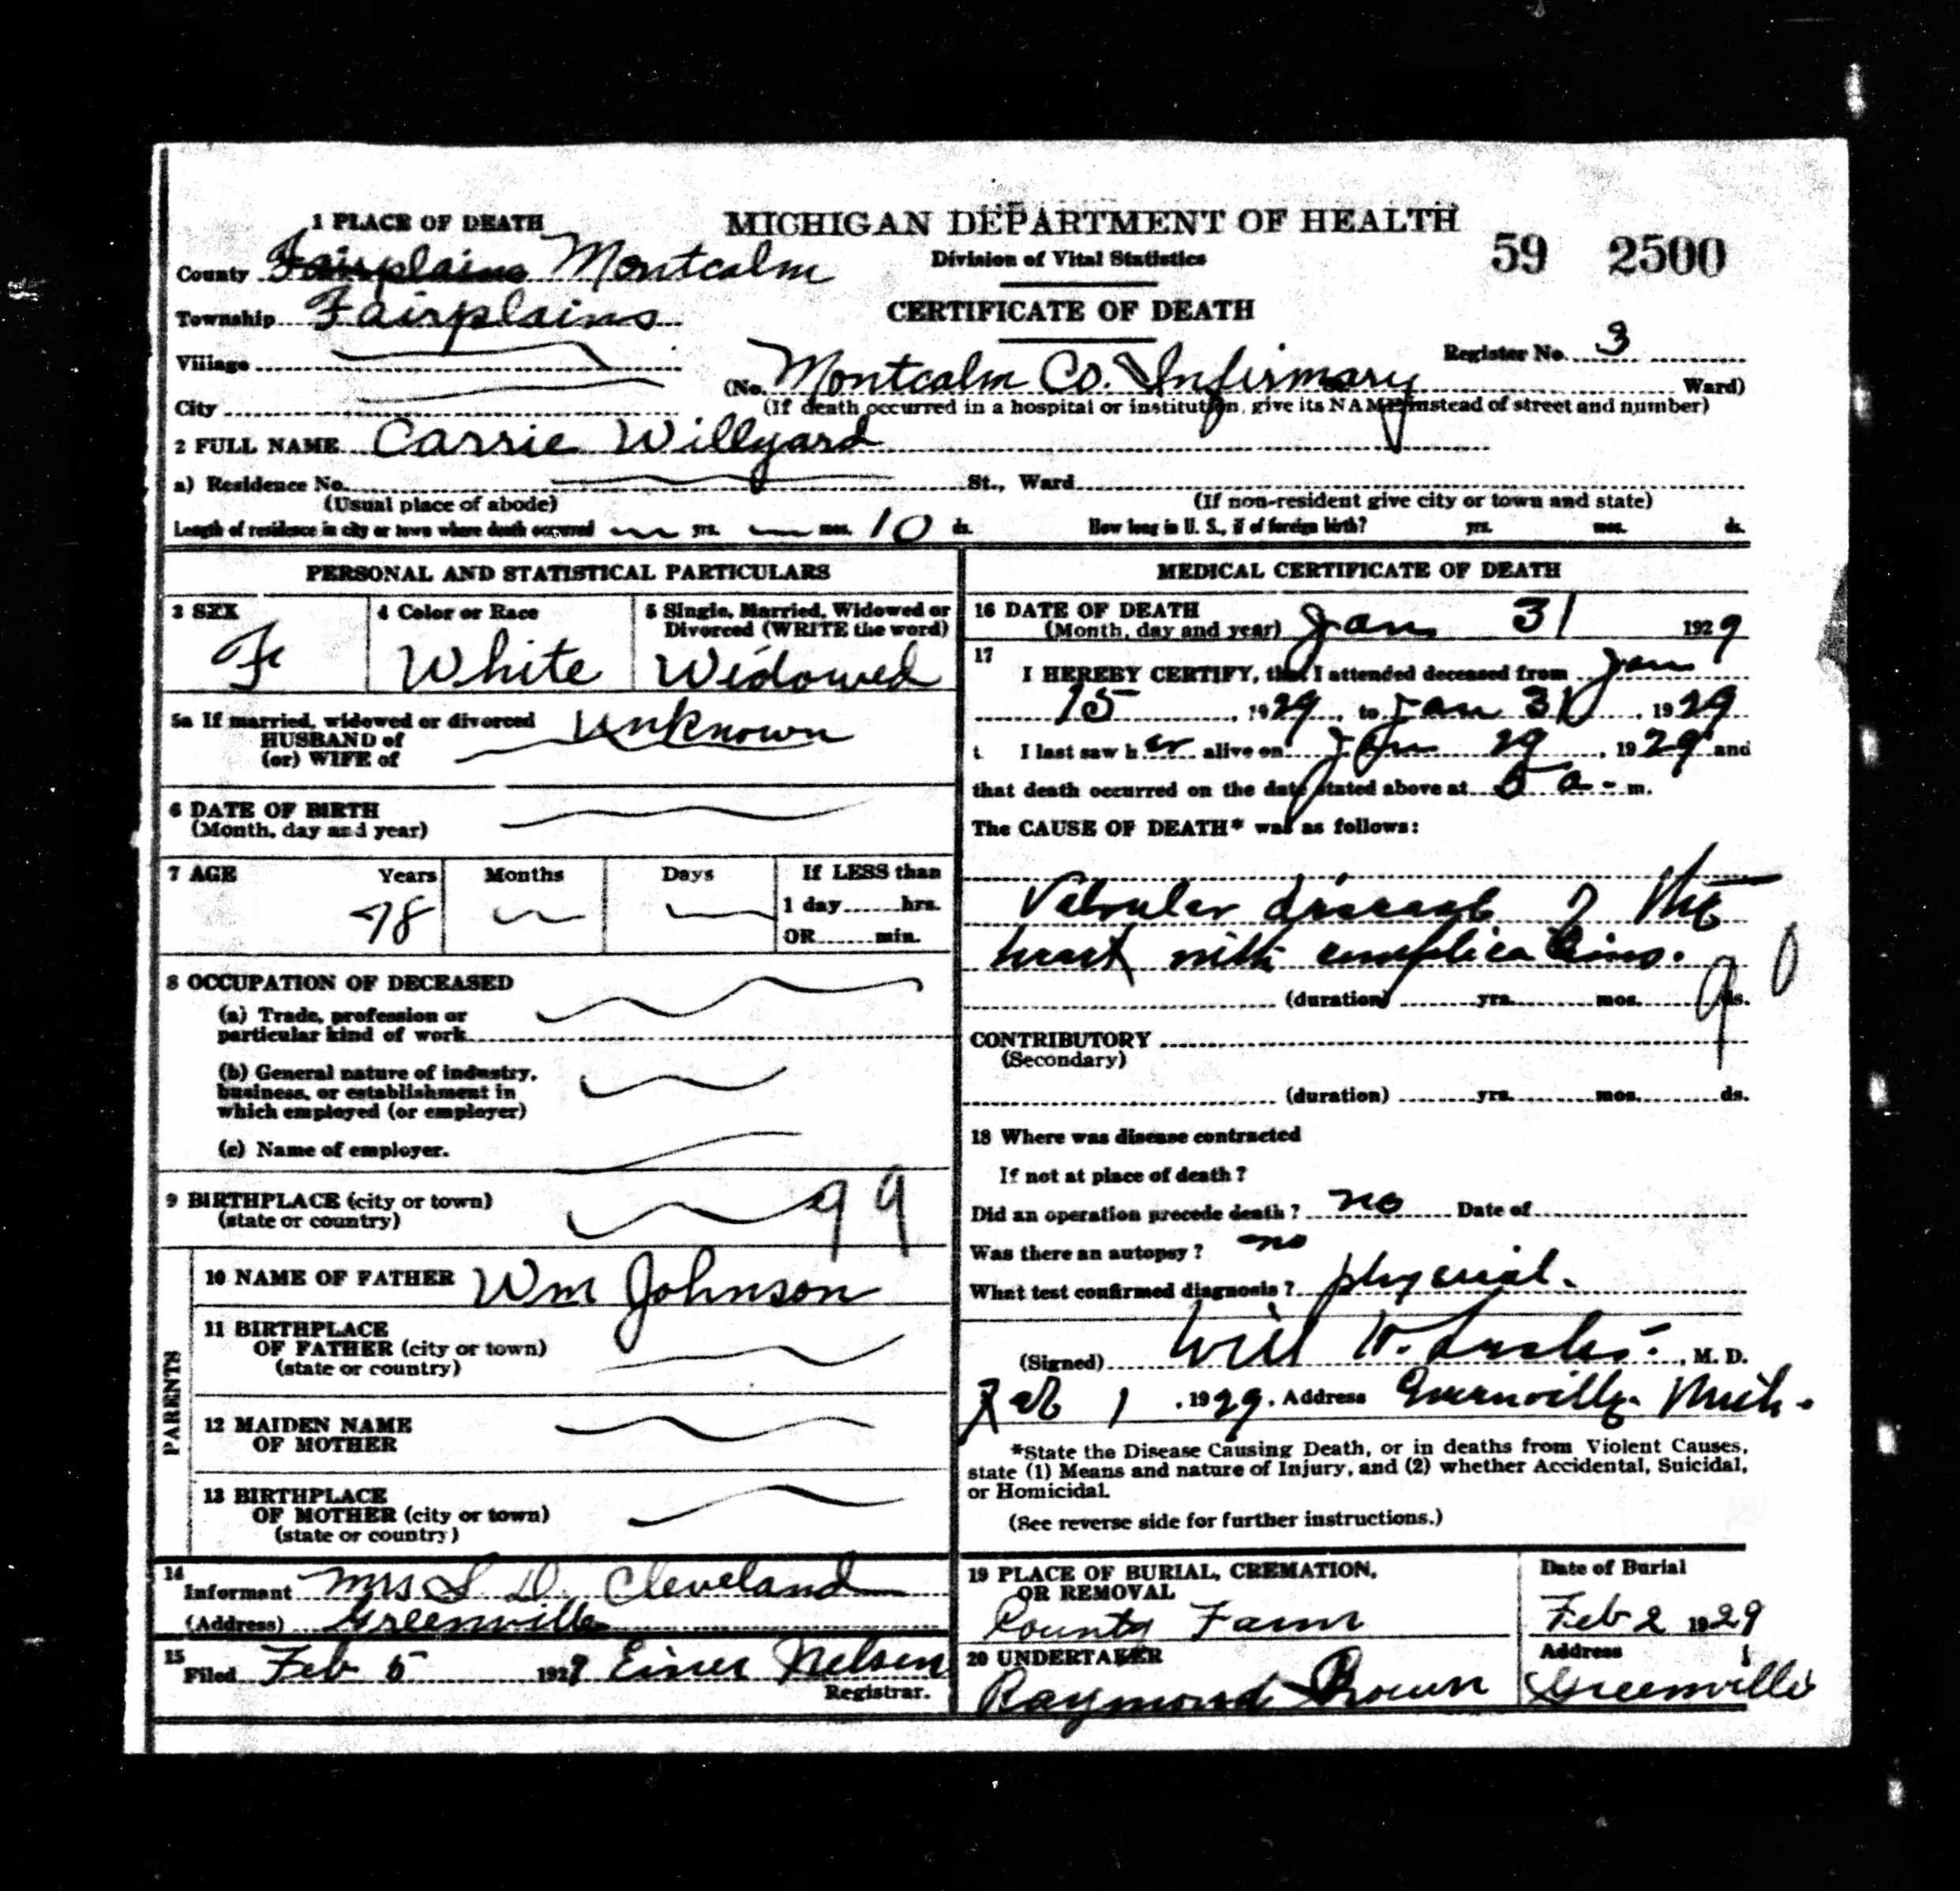 1 PLACE OF DEATH
MICHIGAN DEPARTMENT OF HEALTH
Division of Vital Statistics
59 2500
County Fairplains Montcalm
CERTIFICATE OF DEATH
Township Fairplains
Register No. 3
Village
(No. Montcalm Co. Infirmary Ward)
City
(If death occurred in a hospital or institution, give its NAME instead of street and number)
2 FULL NAME Carrie Willyard
a) Residence No. St., Ward
(Usual place of abode) (If non-resident give city or town and state)
Length of residence in city or town where death occurred yrs. mos. 10 ds. How long in U. S., if of foreign birth? yrs. mos. ds.
PERSONAL AND STATISTICAL PARTICULARS
3 SEX
Fe
4 Color or Race
White
5 Single, Married, Widowed or
Divorced (WRITE the word)
Widowed
5a If married, widowed or divorced
HUSBAND of
(or) WIFE of
Unknown
6 DATE OF BIRTH
(Month, day and year)
7 AGE Years Months Days If LESS than
1 day hrs.
78
OR min.
8 OCCUPATION OF DECEASED
(a) Trade, profession or
particular kind of work
(b) General nature of industry,
business, or establishment in
which employed (or employer)
(c) Name of employer.
9 BIRTHPLACE (city or town)
(state or country)
99
PARENTS
10 NAME OF FATHER Wm Johnson
11 BIRTHPLACE
OF FATHER (city or town)
(state or country)
12 MAIDEN NAME
OF MOTHER
13 BIRTHPLACE
OF MOTHER (city or town)
(state or country)
14
Informant Mrs S. D. Cleveland
(Address) Greenville
15
Filed Feb 5 1929 Einer Nelsen
Registrar.
MEDICAL CERTIFICATE OF DEATH
16 DATE OF DEATH
(Month, day and year) Jan 31 1929
17
I HEREBY CERTIFY, that I attended deceased from Jan
15, 1929, to Jan 31, 1929
t I last saw her alive on Jan 29, 1929 and
that death occurred on the date stated above at 5 a. m.
The CAUSE OF DEATH* was as follows:
Valvular disease of the
heart with complications.
90
(duration) yrs. mos. ds.
CONTRIBUTORY
(Secondary)
(duration) yrs. mos. ds.
18 Where was disease contracted
If not at place of death?
Did an operation precede death? no Date of
Was there an autopsy? no
What test confirmed diagnosis? physical.
(Signed) Will , M. D.
Feb 1, 1929. Address Greenville Mich.
*State the Disease Causing Death, or in deaths from Violent Causes,
state (1) Means and nature of Injury, and (2) whether Accidental, Suicidal,
or Homicidal.
(See reverse side for further instructions.)
19 PLACE OF BURIAL, CREMATION,
OR REMOVAL
County Farm
Date of Burial
Feb 2 1929
20 UNDERTAKER
Raymond Brown
Address
Greenville